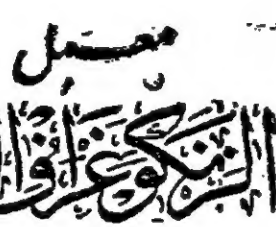 معمل
الزنكوغراف